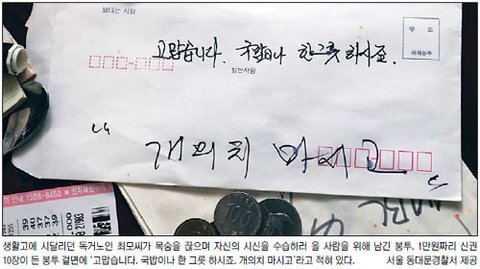 보내는 사람
우 표
고맙습니다. 국밥이나 한그릇 하시죠.
받는사람
" 개의치 마시고 "
1588-6450
생활고에 시달리던 독거노인 최모씨가 목숨을 끊으며 자신의 시신을 수습하러 올 사람을 위해 남긴 봉투. 1만원짜리 신권
10장이 든 봉투 겉면에 '고맙습니다. 국밥이나 한 그릇 하시죠. 개의치 마시고'라고 적혀 있다. 서울 동대문경찰서 제공